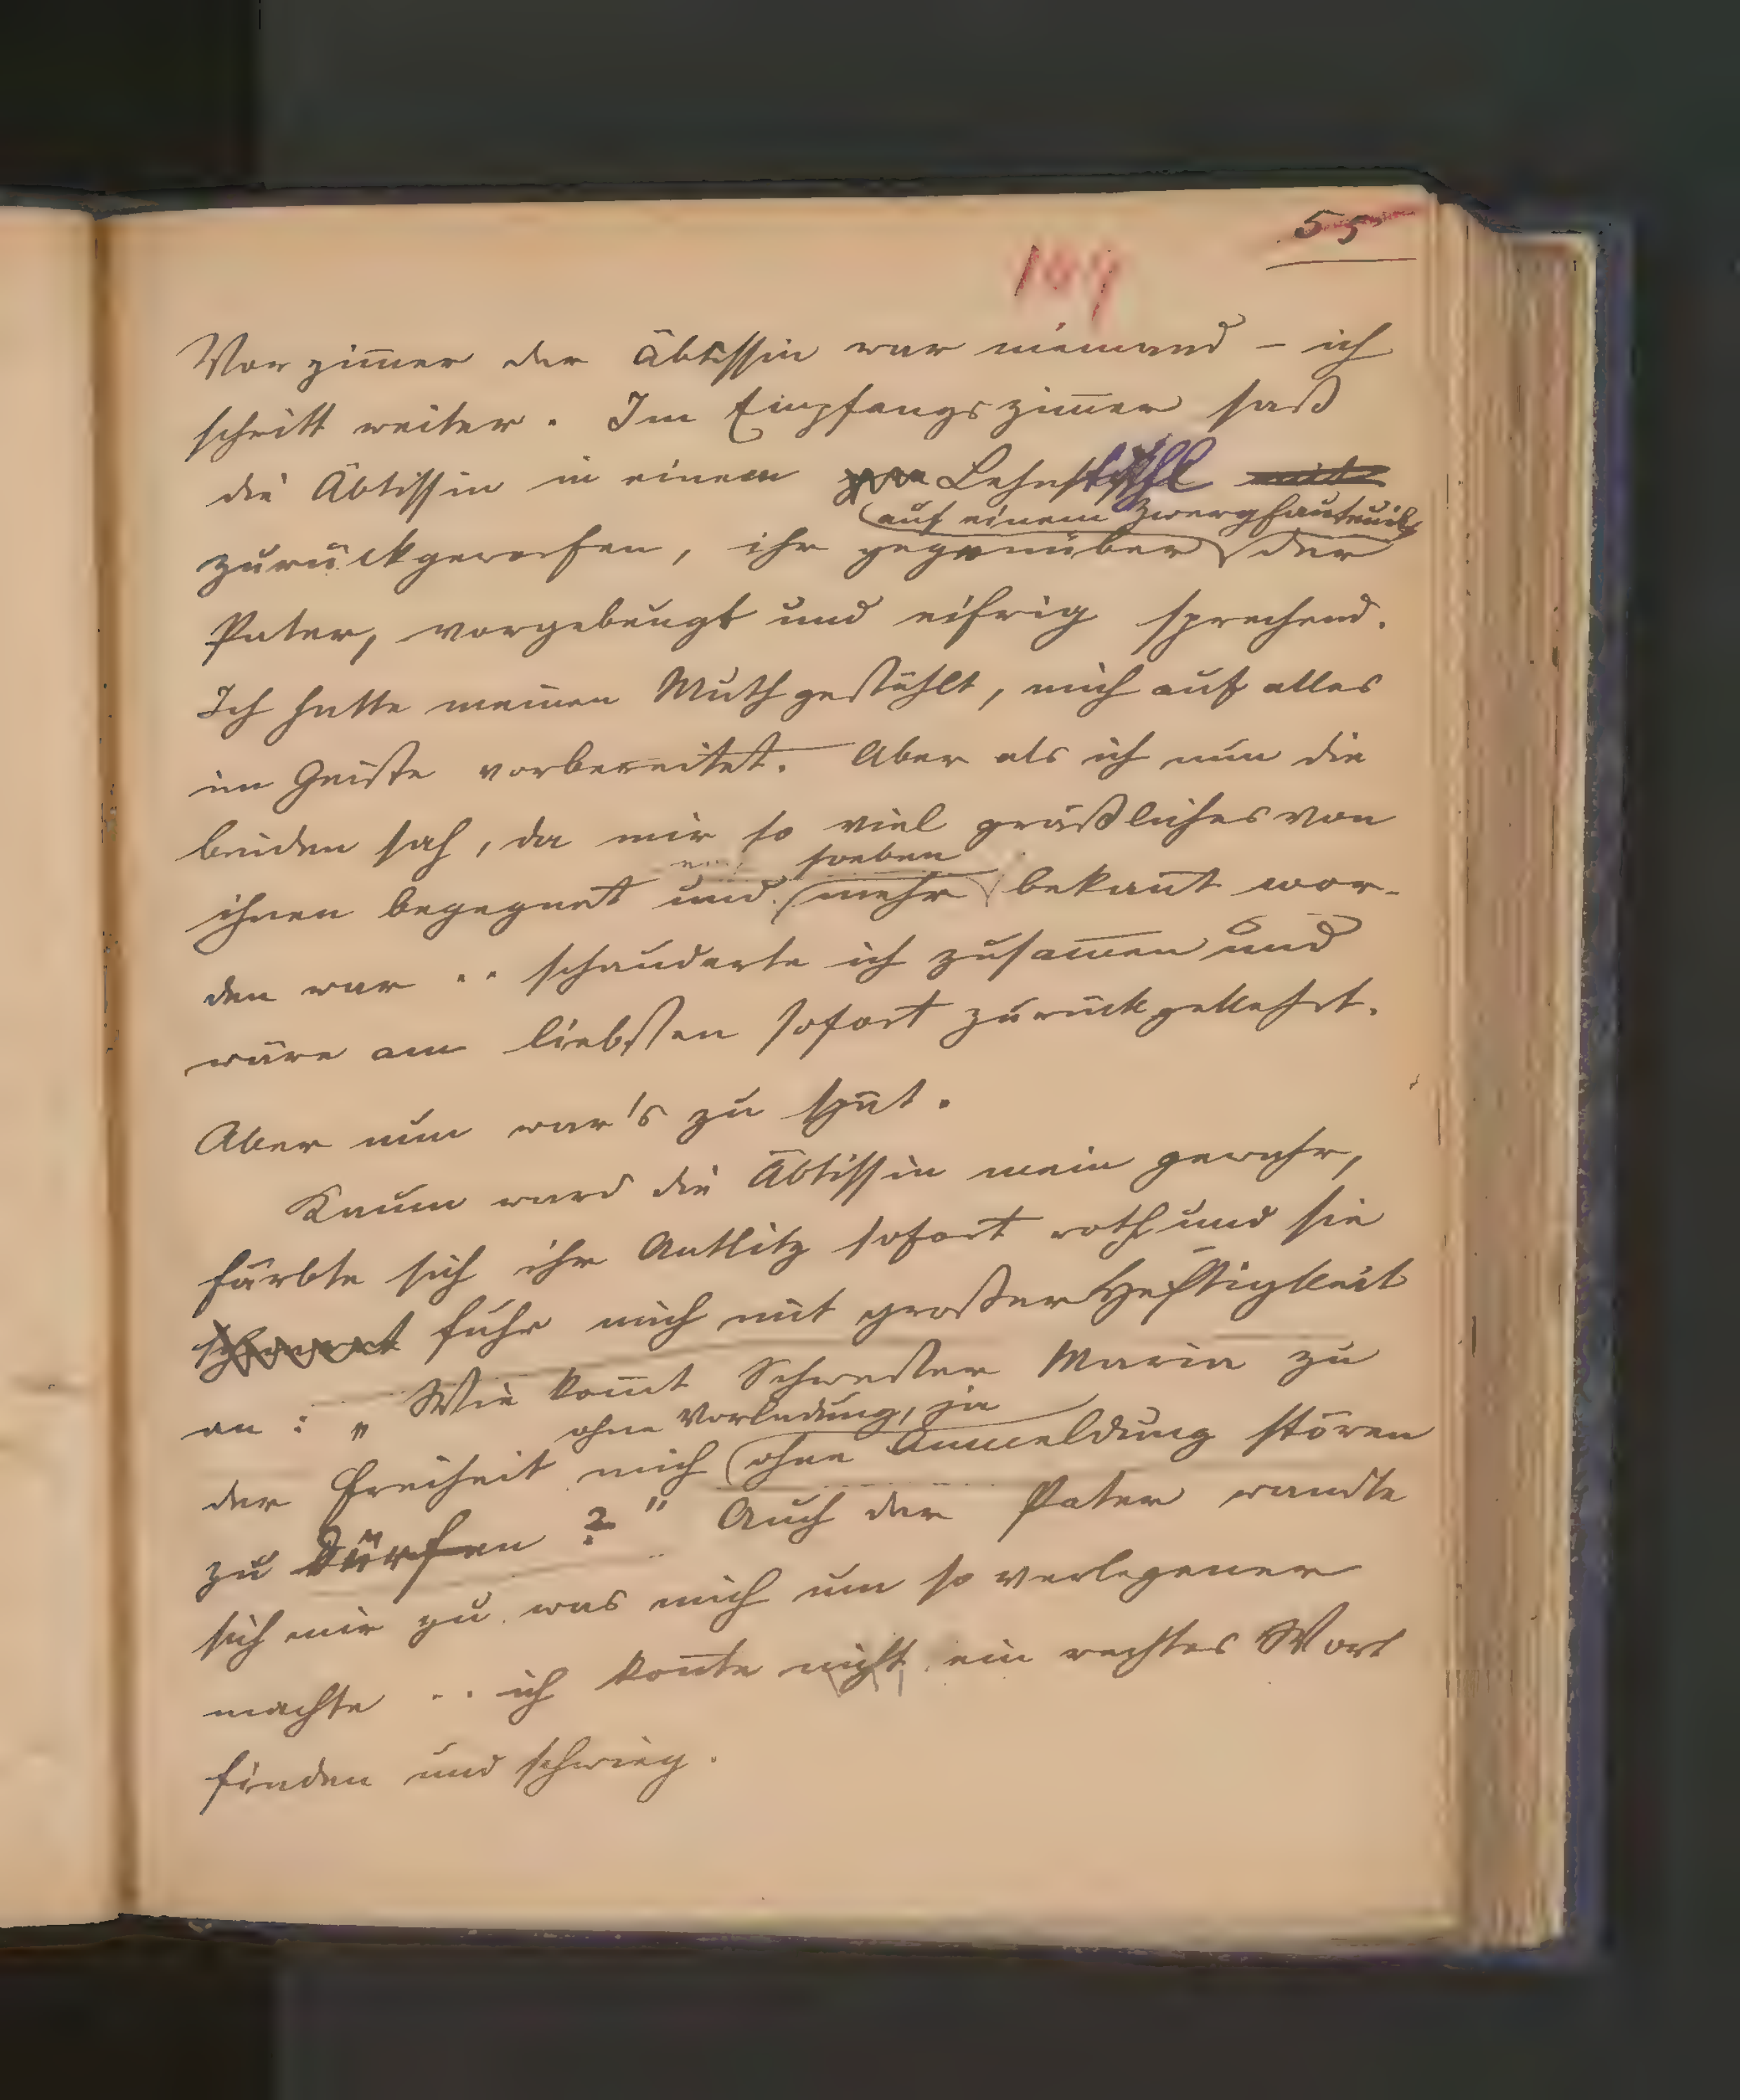 55
109
Vorzim̄er der Äbtissin war niemand – ich
schritt weiter. Im Empfangszim̄er saß
die Äbtissin in einem Lehnstuhl
auf einem Zwergfauteuil
zurückgeworfen, ihr gegenüber der
Pater, vorgebeugt und eifrig sprechend.
Ich hatte meinen Muth gestählt, mich auf alles
im Geiste vorbereitet. Aber als ich nun die
beiden sah, da mir so viel gräßliches von
soeben
ihnen begegnet und mehr bekan̄t wor-
den war .. schauderte ich zusam̄en und
wäre am liebsten sofort zurückgekehrt.
Aber nun war's zu spät.
Kaum ward die Äbtissin mein gewahr,
färbte sich ihr Antlitz sofort roth und sie
fuhr mich mit großer Heftigkeit
an: „Wie kom̄t Schwester Maria zu
ohne Vorladung, ja
der Freiheit mich ohne Anmeldung stören
zu dürfen?" Auch der Pater wandte
sich mir zu was mich um so verlegener
machte .. ich kon̄te nicht ein rechtes Wort
finden und schwieg.